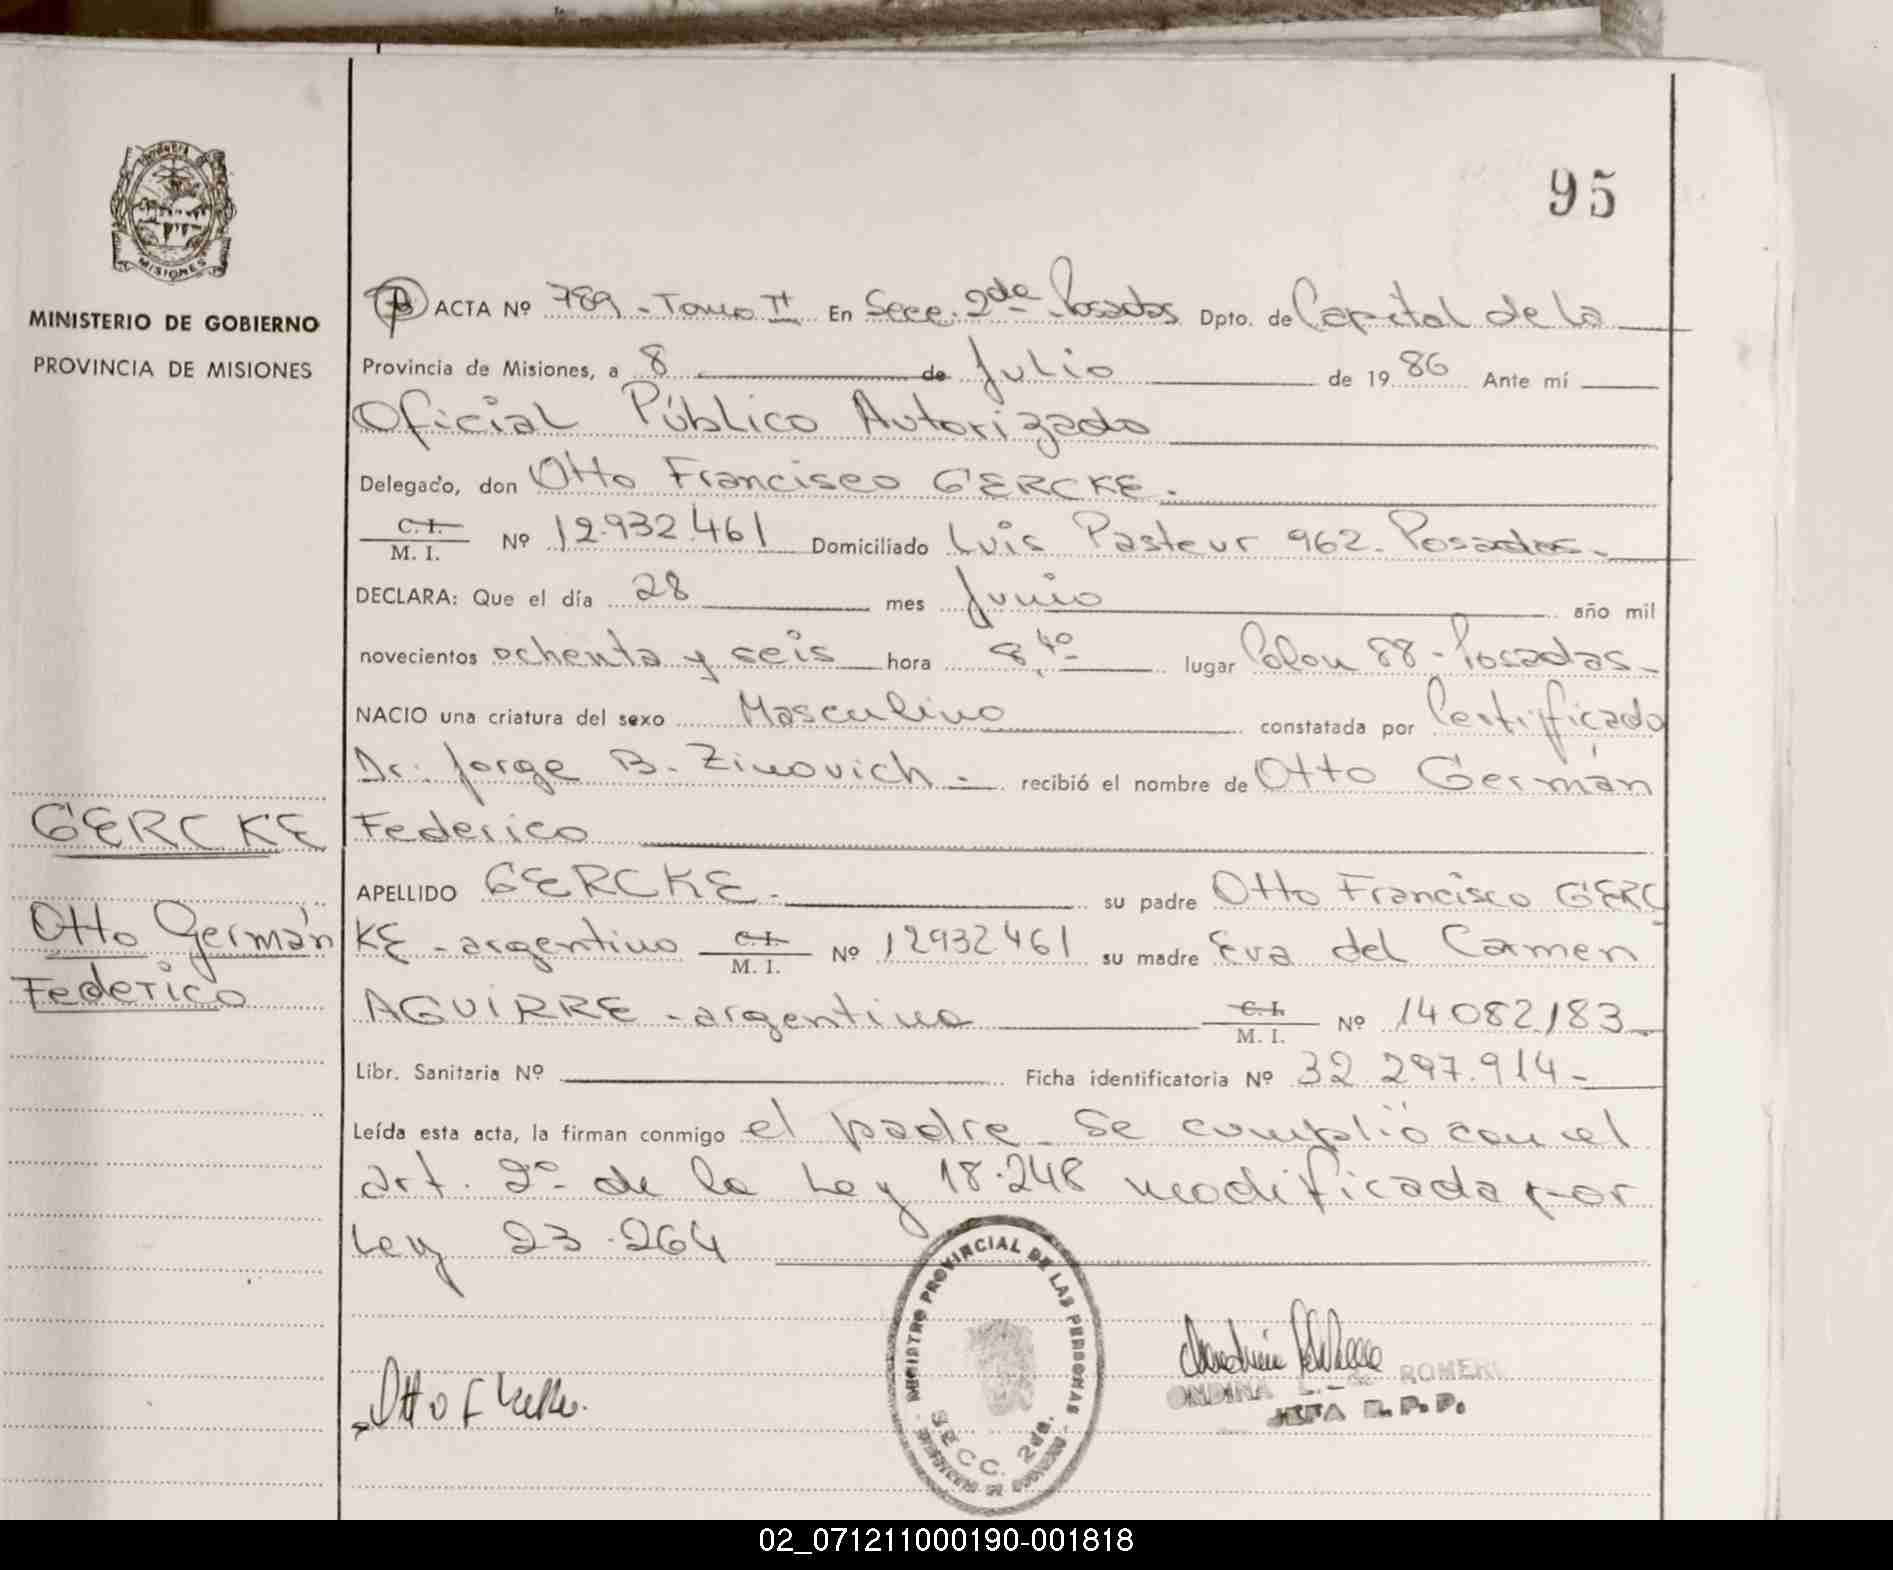 95
MINISTERIO DE GOBIERNO
PROVINCIA DE MISIONES
MISIONES
ACTA Nº 789 - Tomo II En Secc. 2da Posadas Dpto. de Capital de la
Provincia de Misiones, a 8 de Julio de 19 86 Ante mí
Oficial Público Autorizado
Delegado, don Otto Francisco GERCKE.
C.I.
M. I. Nº 12.932.461 Domiciliado Luis Pasteur 962. Posadas.
DECLARA: Que el día 28 mes Junio año mil
novecientos ochenta y seis hora 8,40 lugar Colon 88 - Posadas -
NACIO una criatura del sexo Masculino constatada por Certificado
Dr. Jorge B. Zinovich - recibió el nombre de Otto Germán
Federico
APELLIDO GERCKE. su padre Otto Francisco GERC
KE - argentino C.I. M. I. Nº 12932461 su madre Eva del Carmen
AGUIRRE - argentina C.I. M. I. Nº 14082183
Libr. Sanitaria Nº Ficha identificatoria Nº 32 297.914 -
Leída esta acta, la firman conmigo el padre - Se cumplió con el
art. 2º de la Ley 18.248 modificada por
Ley 23.264
GERCKE
Otto Germán
Federico
REGISTRO PROVINCIAL DE LAS PERSONAS
SECC. 2da.
MINISTERIO DE GOBIERNO
Otto F
ONDINA L. de ROMERO
JEFA R.P.P.
02_071211000190-001818